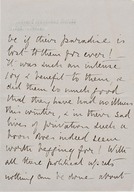 be if their paradise is
lost to them for ever!
It was such an intense
joy & benefit to them &
did them so much good
that they have had no illness
this winter, & in their sad
lives of privation such a
boon does indeed seem
worth begging for! With
all these political upsets
nothing can be done about